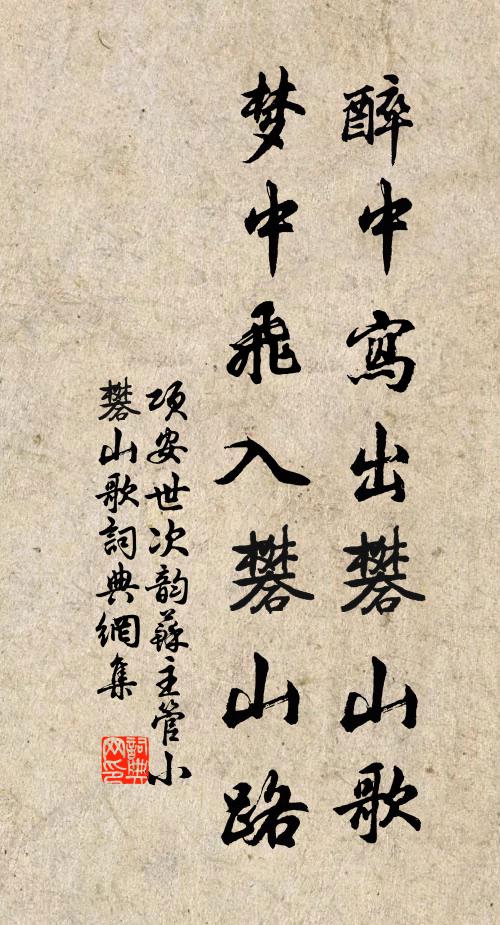 醉中寫出礬山歌
梦中飛入礬山路
項安世次韵蘇主管小
礬山歌詞典網集
詞典
网印